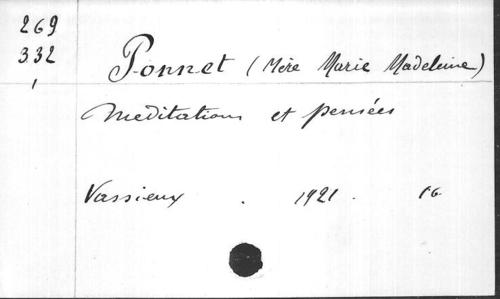 269
332
Ponnet (Mère Marie Madeleine)
Meditations et pensées
Vassieux . 1921. 16